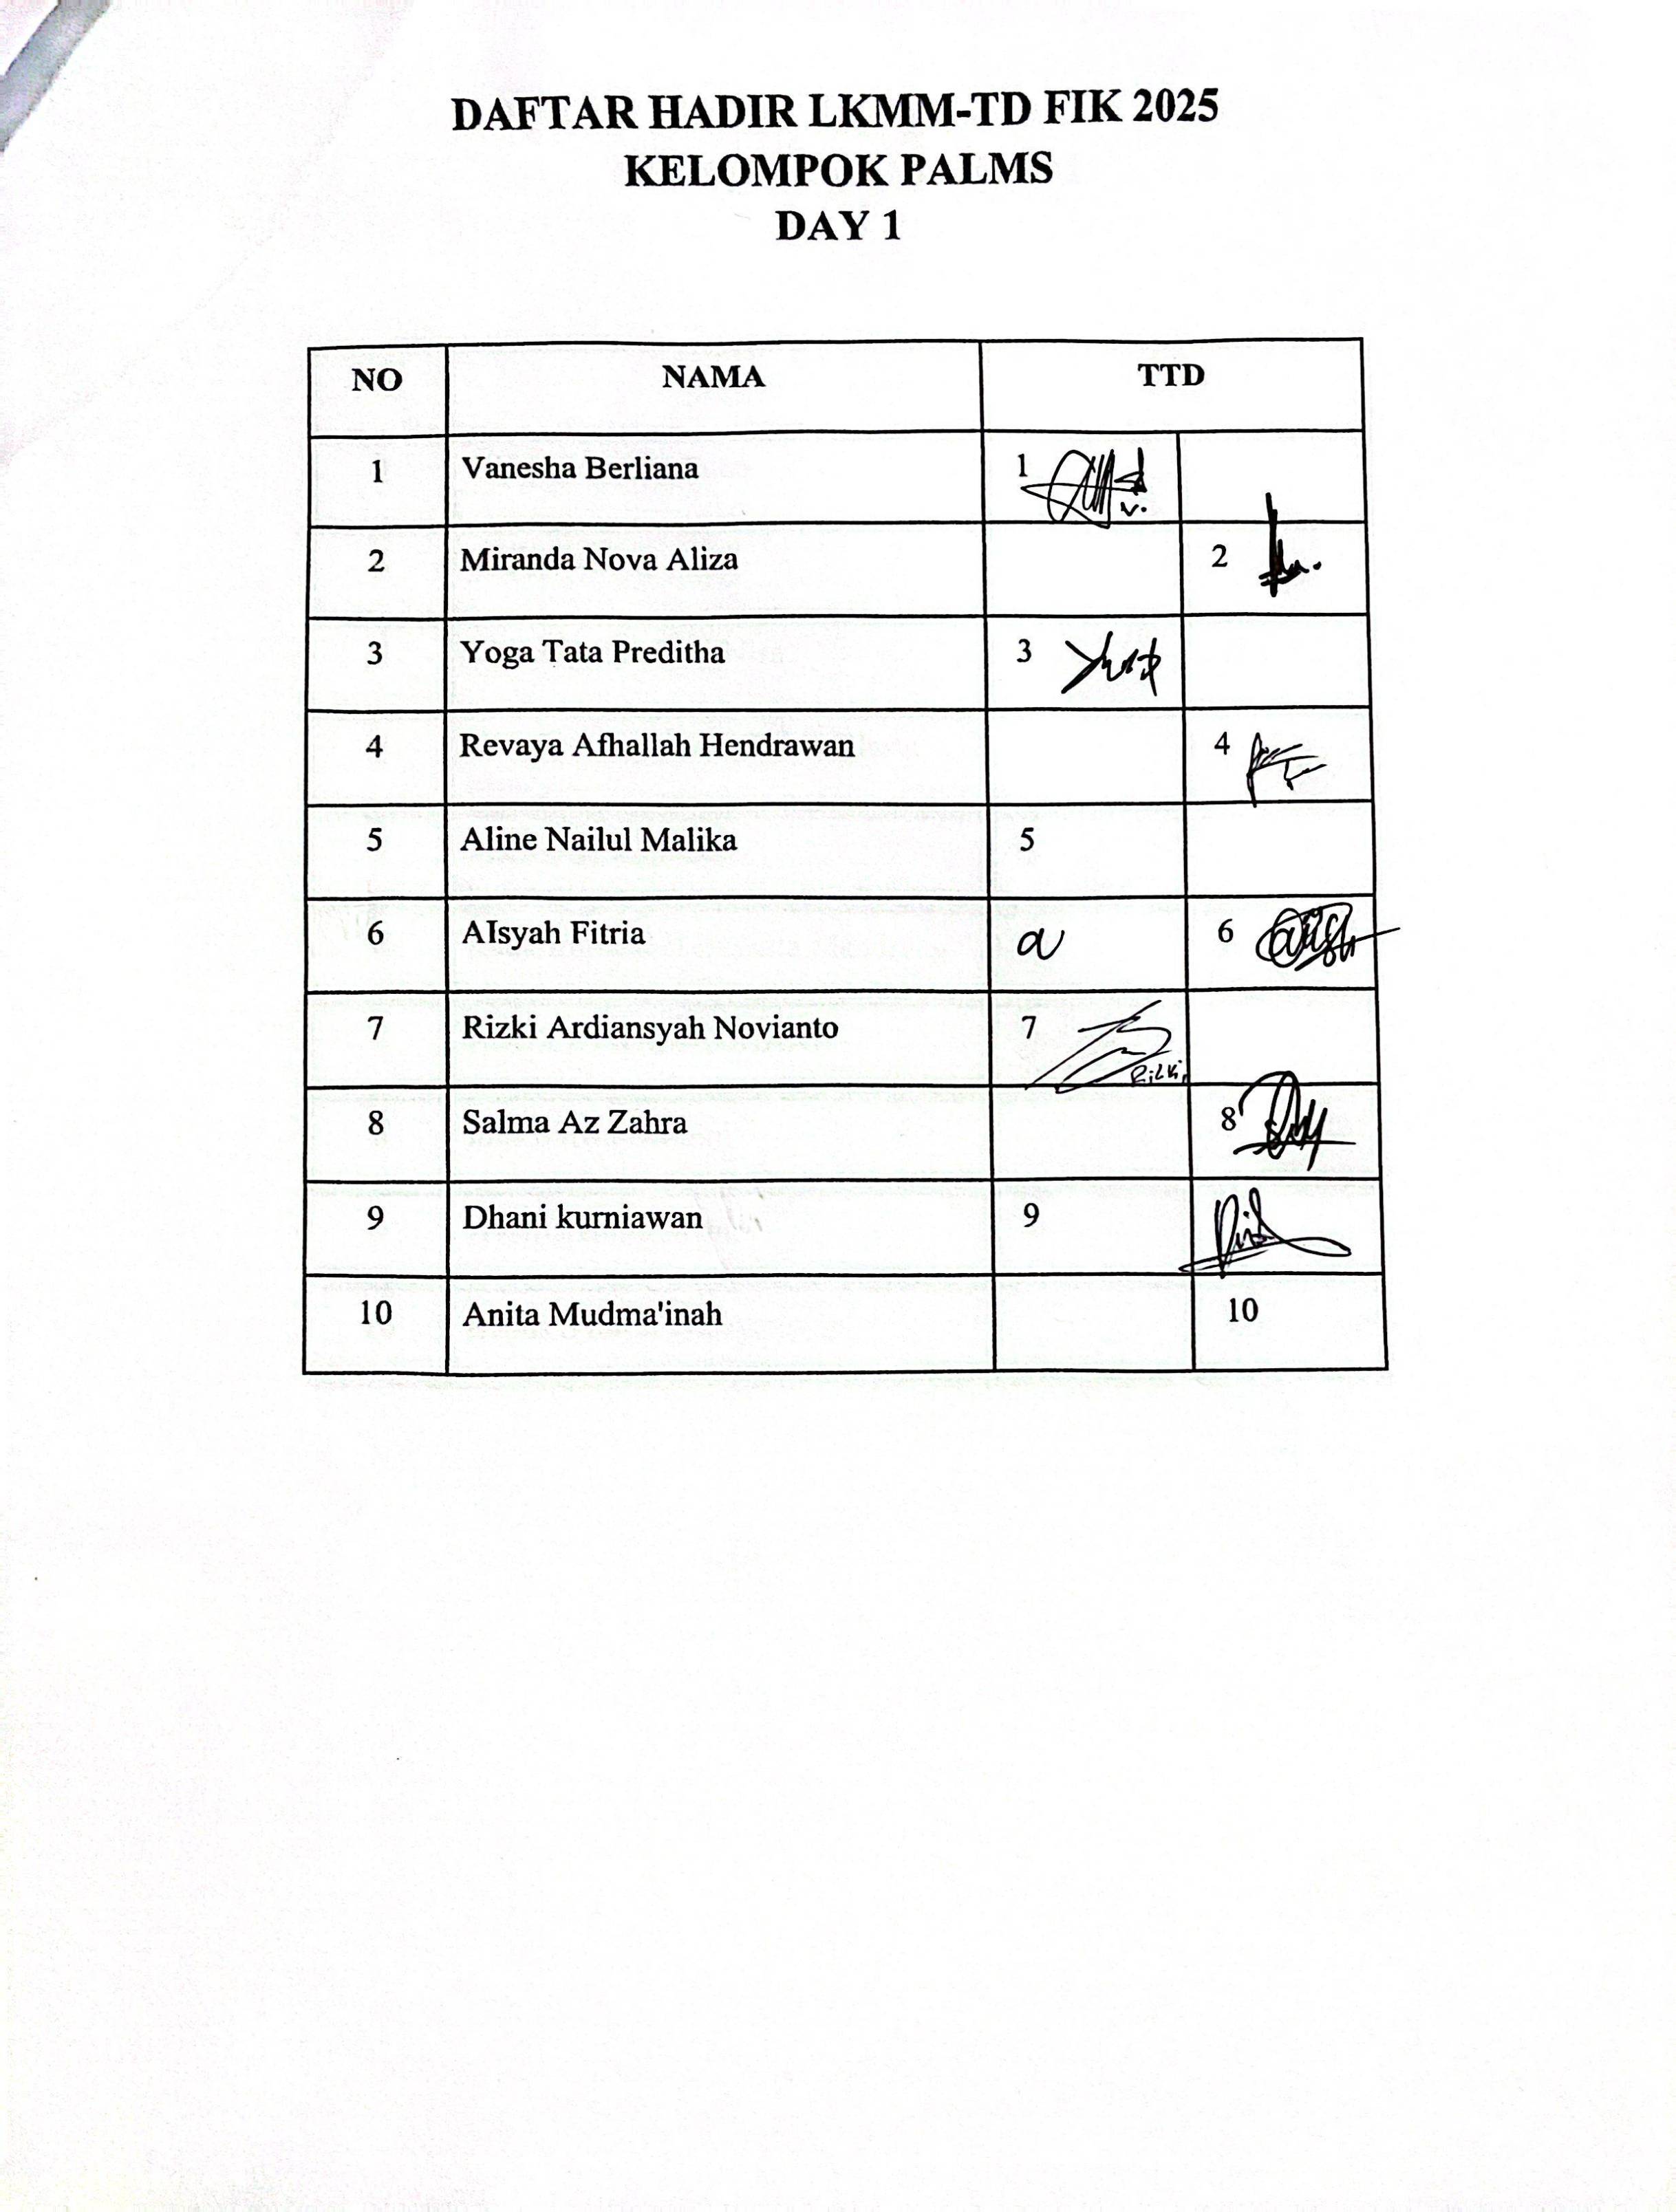 DAFTAR HADIR LKMM-TD FIK 2025
KELOMPOK PALMS
DAY 1
NO NAMA TTD
1 Vanesha Berliana 1 v.
2 Miranda Nova Aliza 2
3 Yoga Tata Preditha 3
4 Revaya Afhallah Hendrawan 4
5 Aline Nailul Malika 5
6 AIsyah Fitria a 6
7 Rizki Ardiansyah Novianto 7 Rizki
8 Salma Az Zahra 8
9 Dhani kurniawan 9
10 Anita Mudma'inah 10